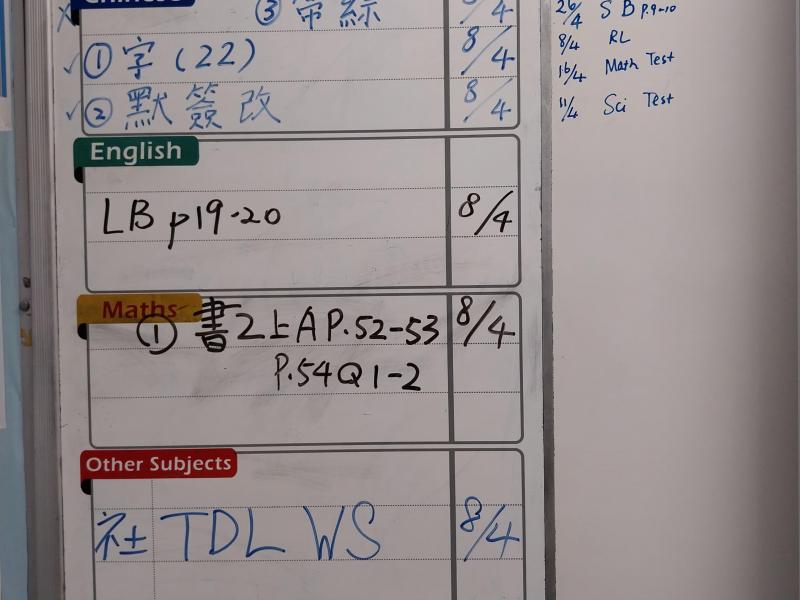 Chinese
③ 帶綜 8/4
① 字 (22) 8/4
② 默簽改 8/4
English
LB p19-20 8/4
Maths
① 書2上A P.52-53 8/4
P.54Q1-2
Other Subjects
社 TDL WS 8/4
26/4 SB p.9-10
8/4 RL
16/4 Math Test
11/4 Sci Test